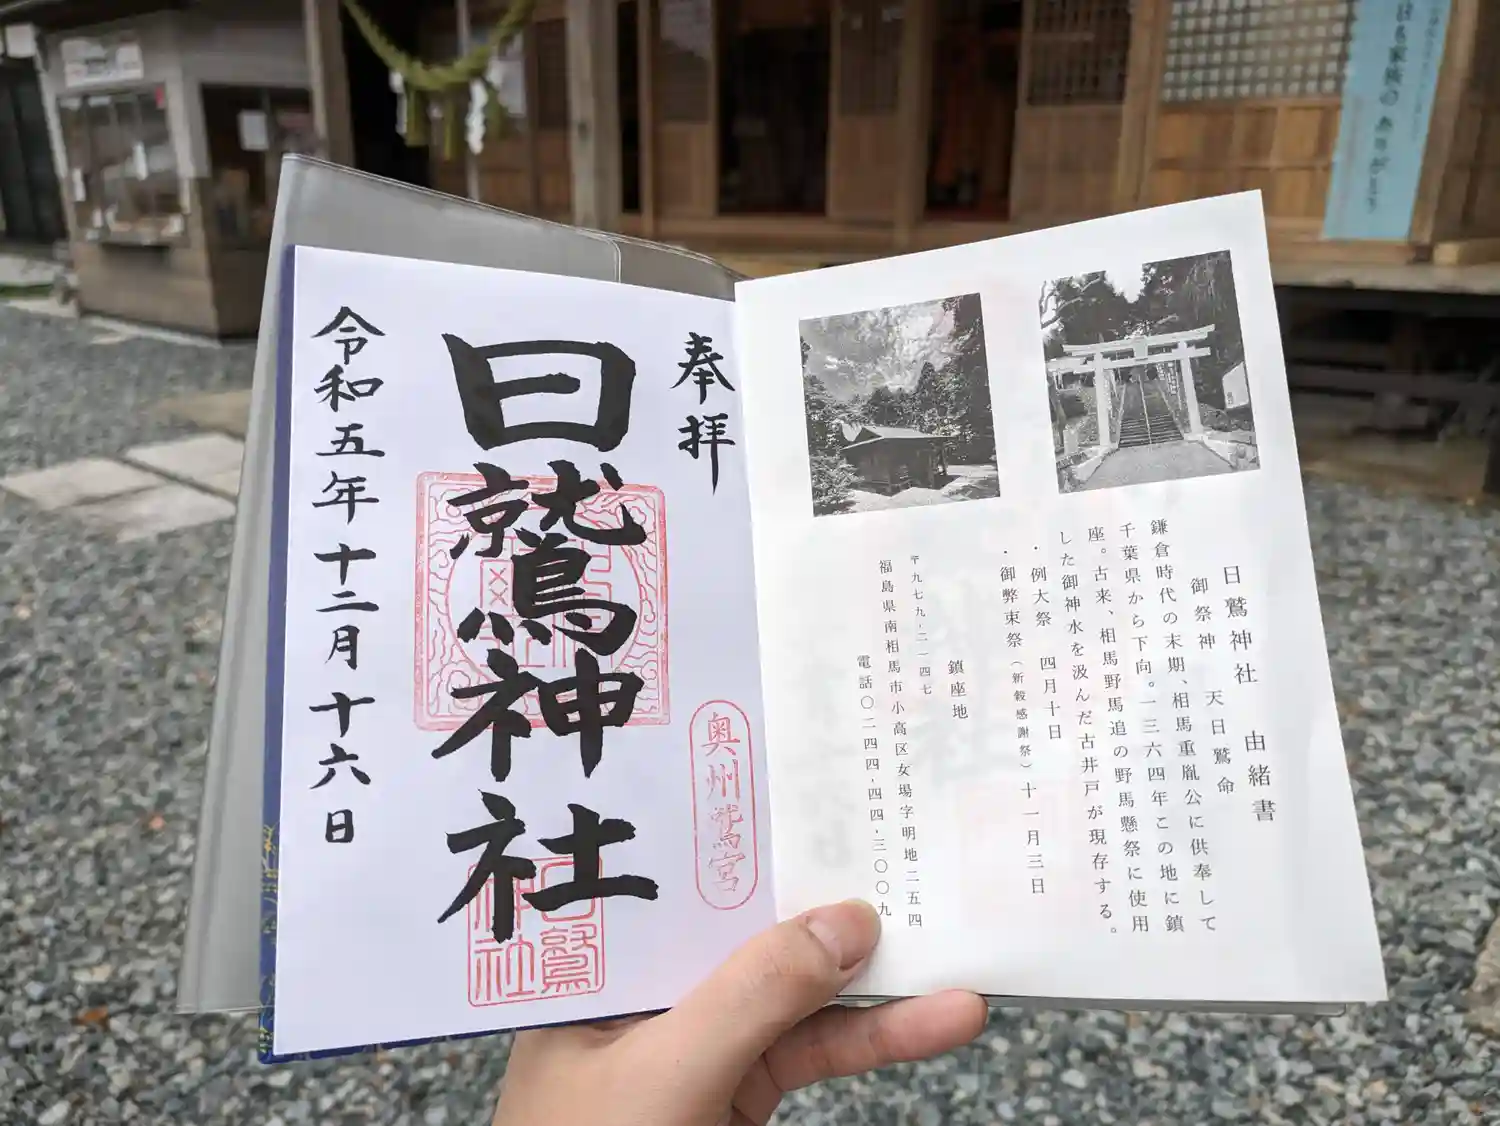 奉拝
日鷲神社
令和五年十二月十六日
奥州鷲宮
日鷲神社
日鷲神社 由緒書
御祭神 天日鷲命
鎌倉時代の末期、相馬重胤公に供奉して
千葉県から下向。一三六四年この地に鎮
座。古来、相馬野馬追の野馬懸祭に使用
した御神水を汲んだ古井戸が現存する。
・例大祭 四月十日
・御弊束祭（新穀感謝祭）十一月三日
鎮座地
〒九七九-二一四七
福島県南相馬市小高区女場字明地二五四
電話〇二四四-四四-三〇〇九